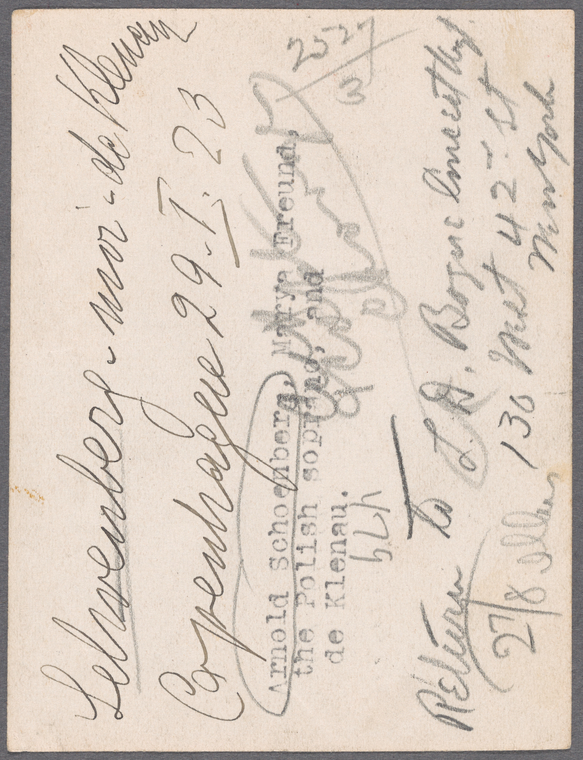 Schoenberg - moi - de Klenau
Copenhague 29.I.23
25-27
3
Arnold Schoenberg, Marya Freund,
the Polish soprano, and
de Klenau.
Return to L.D. Bogue
130 West 42nd St
New York
27/8